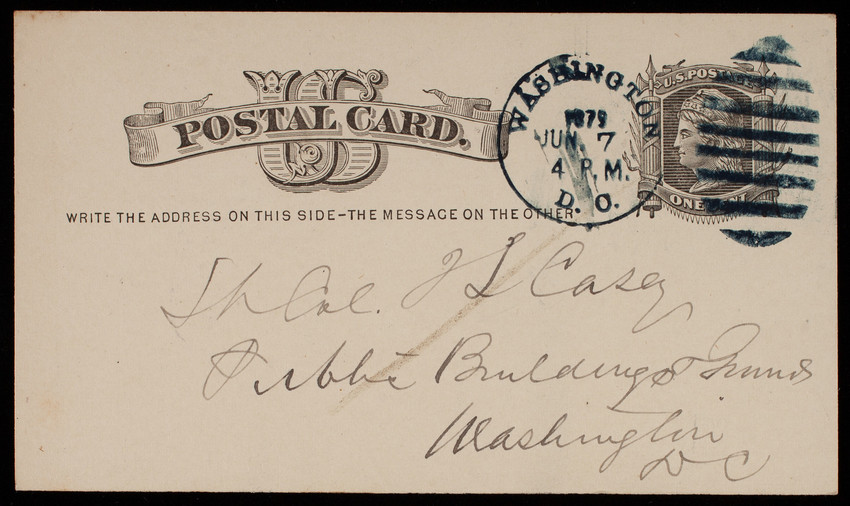 US
POSTAL CARD.
WRITE THE ADDRESS ON THIS SIDE-THE MESSAGE ON THE OTHER
WASHINGTON
1879
JUN. 7
4 P.M.
D. C.
U.S. POSTAGE
ONE CENT
Lt Col. T L Casey
Public Buildings & Grounds
Washington
D C